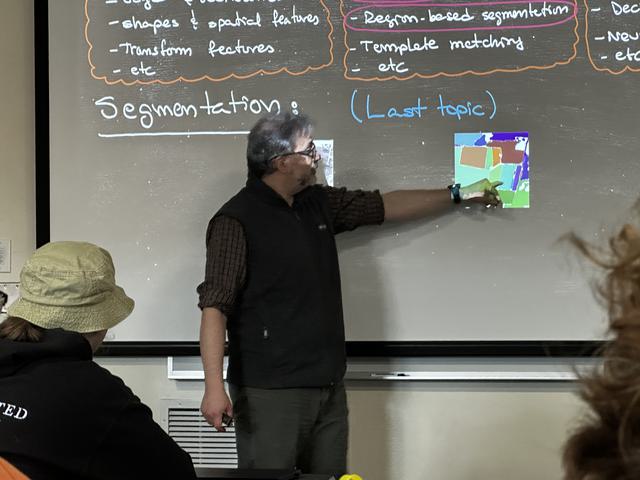 - shapes & spatial features
- Transform features
- etc
- Region-based segmentation
- Template matching
- etc
- Dec
- Neu
- etc
Segmentation:
(Last topic)
TED